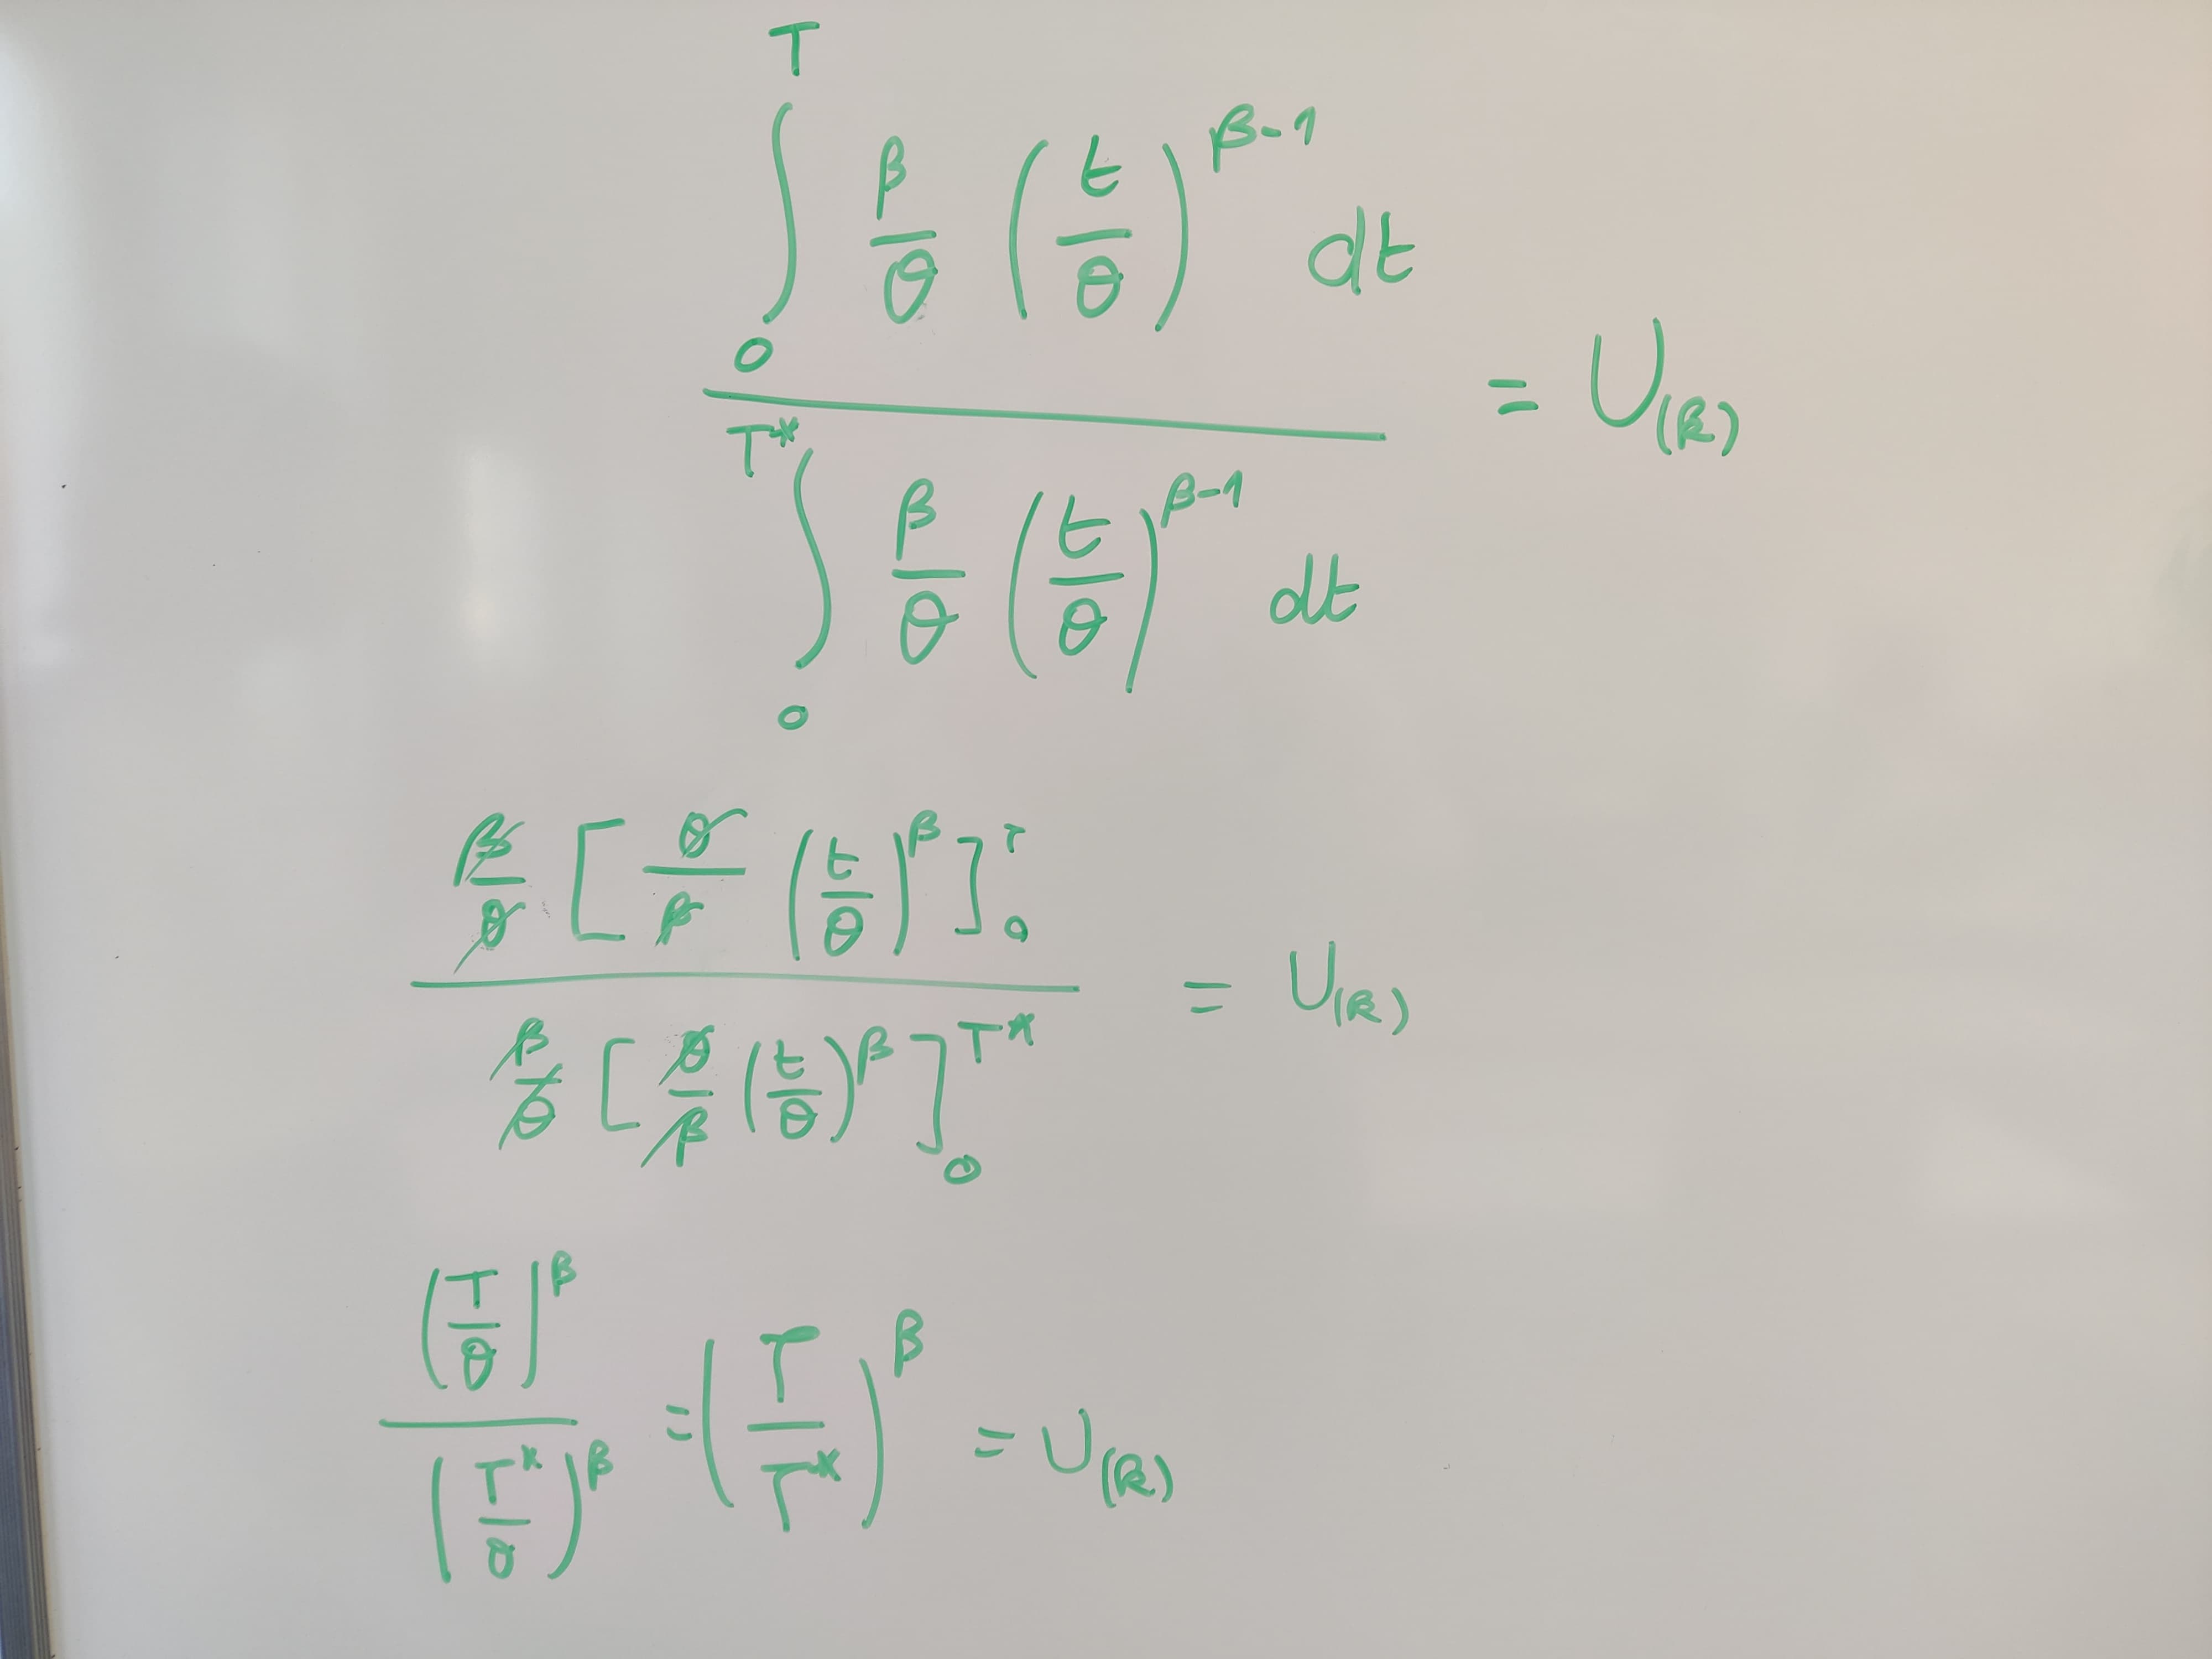 $$\frac{\int_0^T \frac{\beta}{\theta} \left(\frac{t}{\theta}\right)^{\beta-1} dt}{\int_0^{T^*} \frac{\beta}{\theta} \left(\frac{t}{\theta}\right)^{\beta-1} dt} = U_{(k)}$$
$$\frac{\cancel{\frac{\beta}{\theta}} \left[\frac{\cancel{\theta}}{\cancel{\beta}} \left(\frac{t}{\theta}\right)^{\beta}\right]_0^T}{\cancel{\frac{\beta}{\theta}} \left[\frac{\cancel{\theta}}{\cancel{\beta}} \left(\frac{t}{\theta}\right)^{\beta}\right]_0^{T^*}} = U_{(k)}$$
$$\frac{\left(\frac{T}{\theta}\right)^{\beta}}{\left(\frac{T^*}{\theta}\right)^{\beta}} = \left(\frac{T}{T^*}\right)^{\beta} = U_{(k)}$$